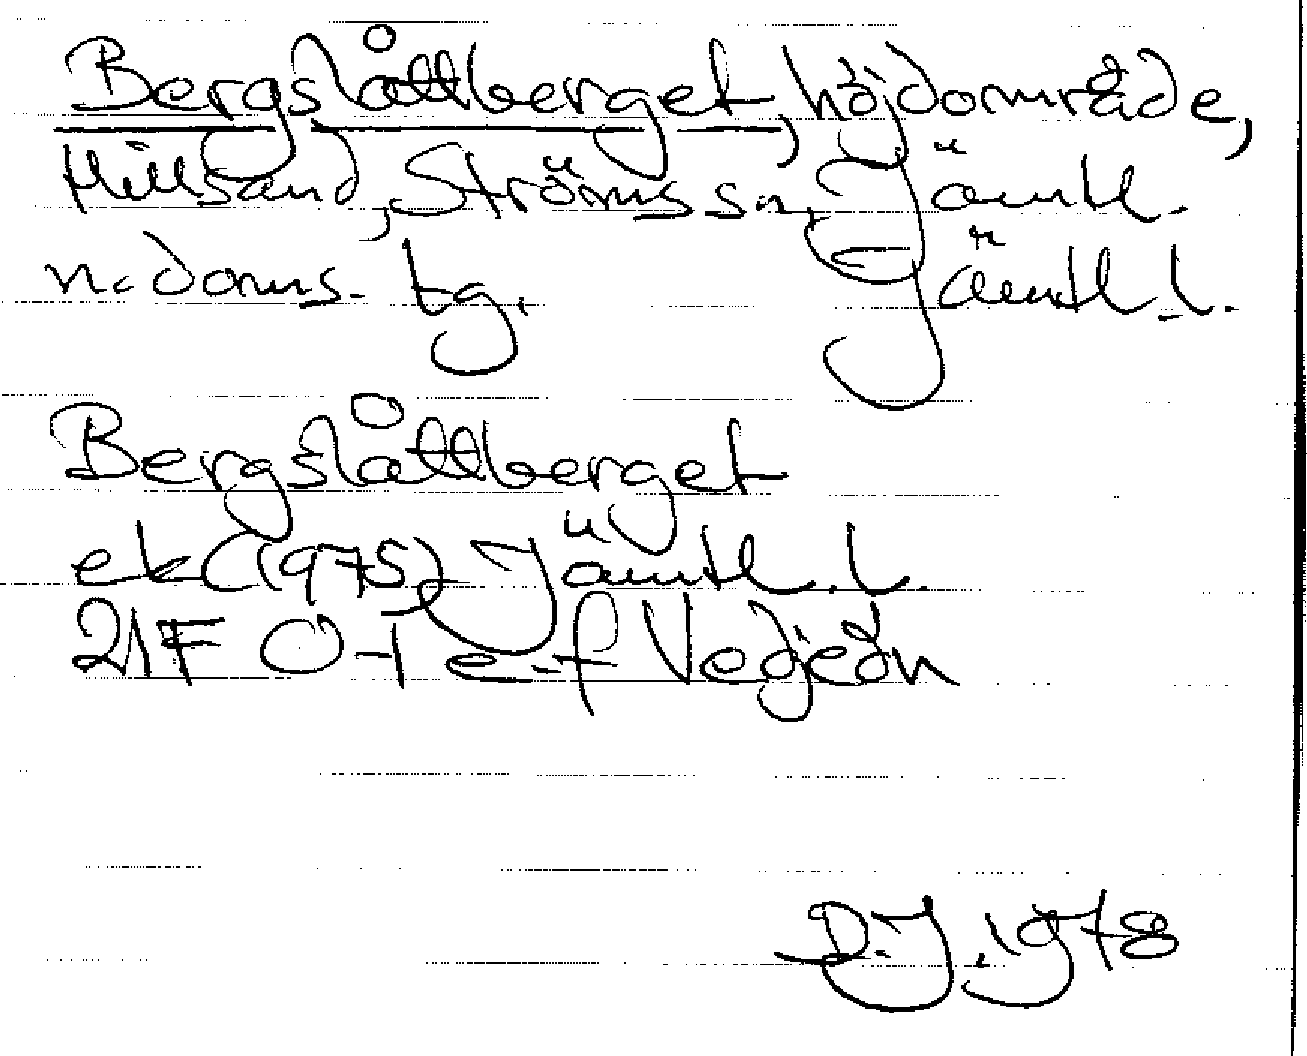 Bergslåttberget, höjdområde,
Hillsand, Ströms sn, Jämtl.
n. doms. tg. Jämtl. l.
Bergslåttberget
ek (1975) Jämtl. l.
21F 0-1 e-f
D.J. 1978